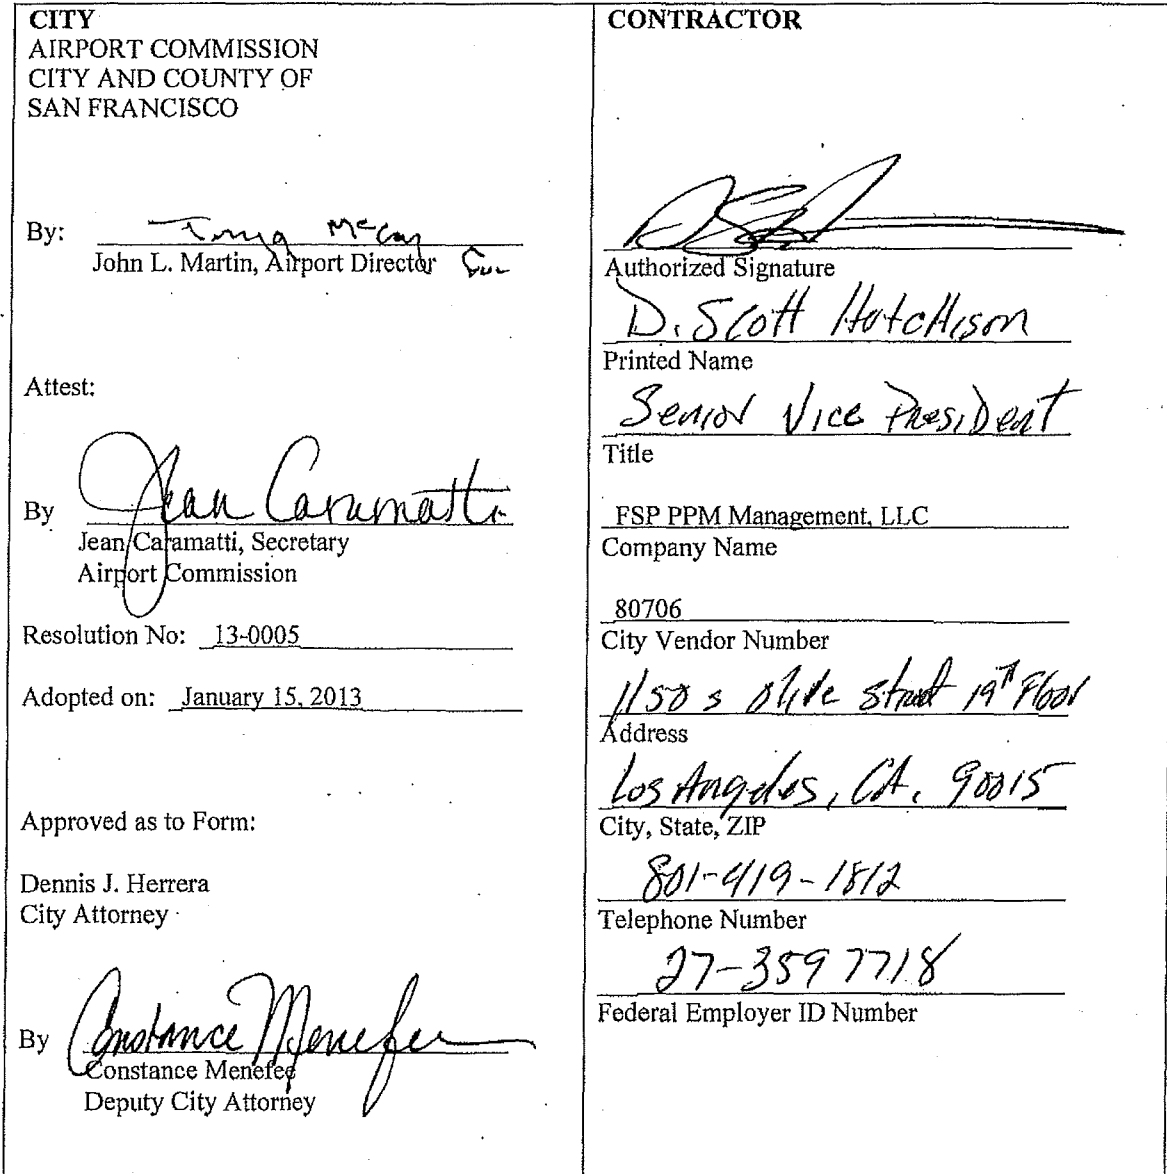 CITY
AIRPORT COMMISSION
CITY AND COUNTY OF
SAN FRANCISCO
By: McCoy
John L. Martin, Airport Director for
Attest:
By Jean Caramatti
Jean Caramatti, Secretary
Airport Commission
Resolution No: 13-0005
Adopted on: January 15, 2013
Approved as to Form:
Dennis J. Herrera
City Attorney
By Constance Menefee
Constance Menefee
Deputy City Attorney
CONTRACTOR
Authorized Signature
D. Scott Hutchison
Printed Name
Senior Vice President
Title
FSP PPM Management, LLC
Company Name
80706
City Vendor Number
1150 s Olive Street 19th Floor
Address
Los Angeles, CA. 90015
City, State, ZIP
801-419-1812
Telephone Number
27-3597718
Federal Employer ID Number